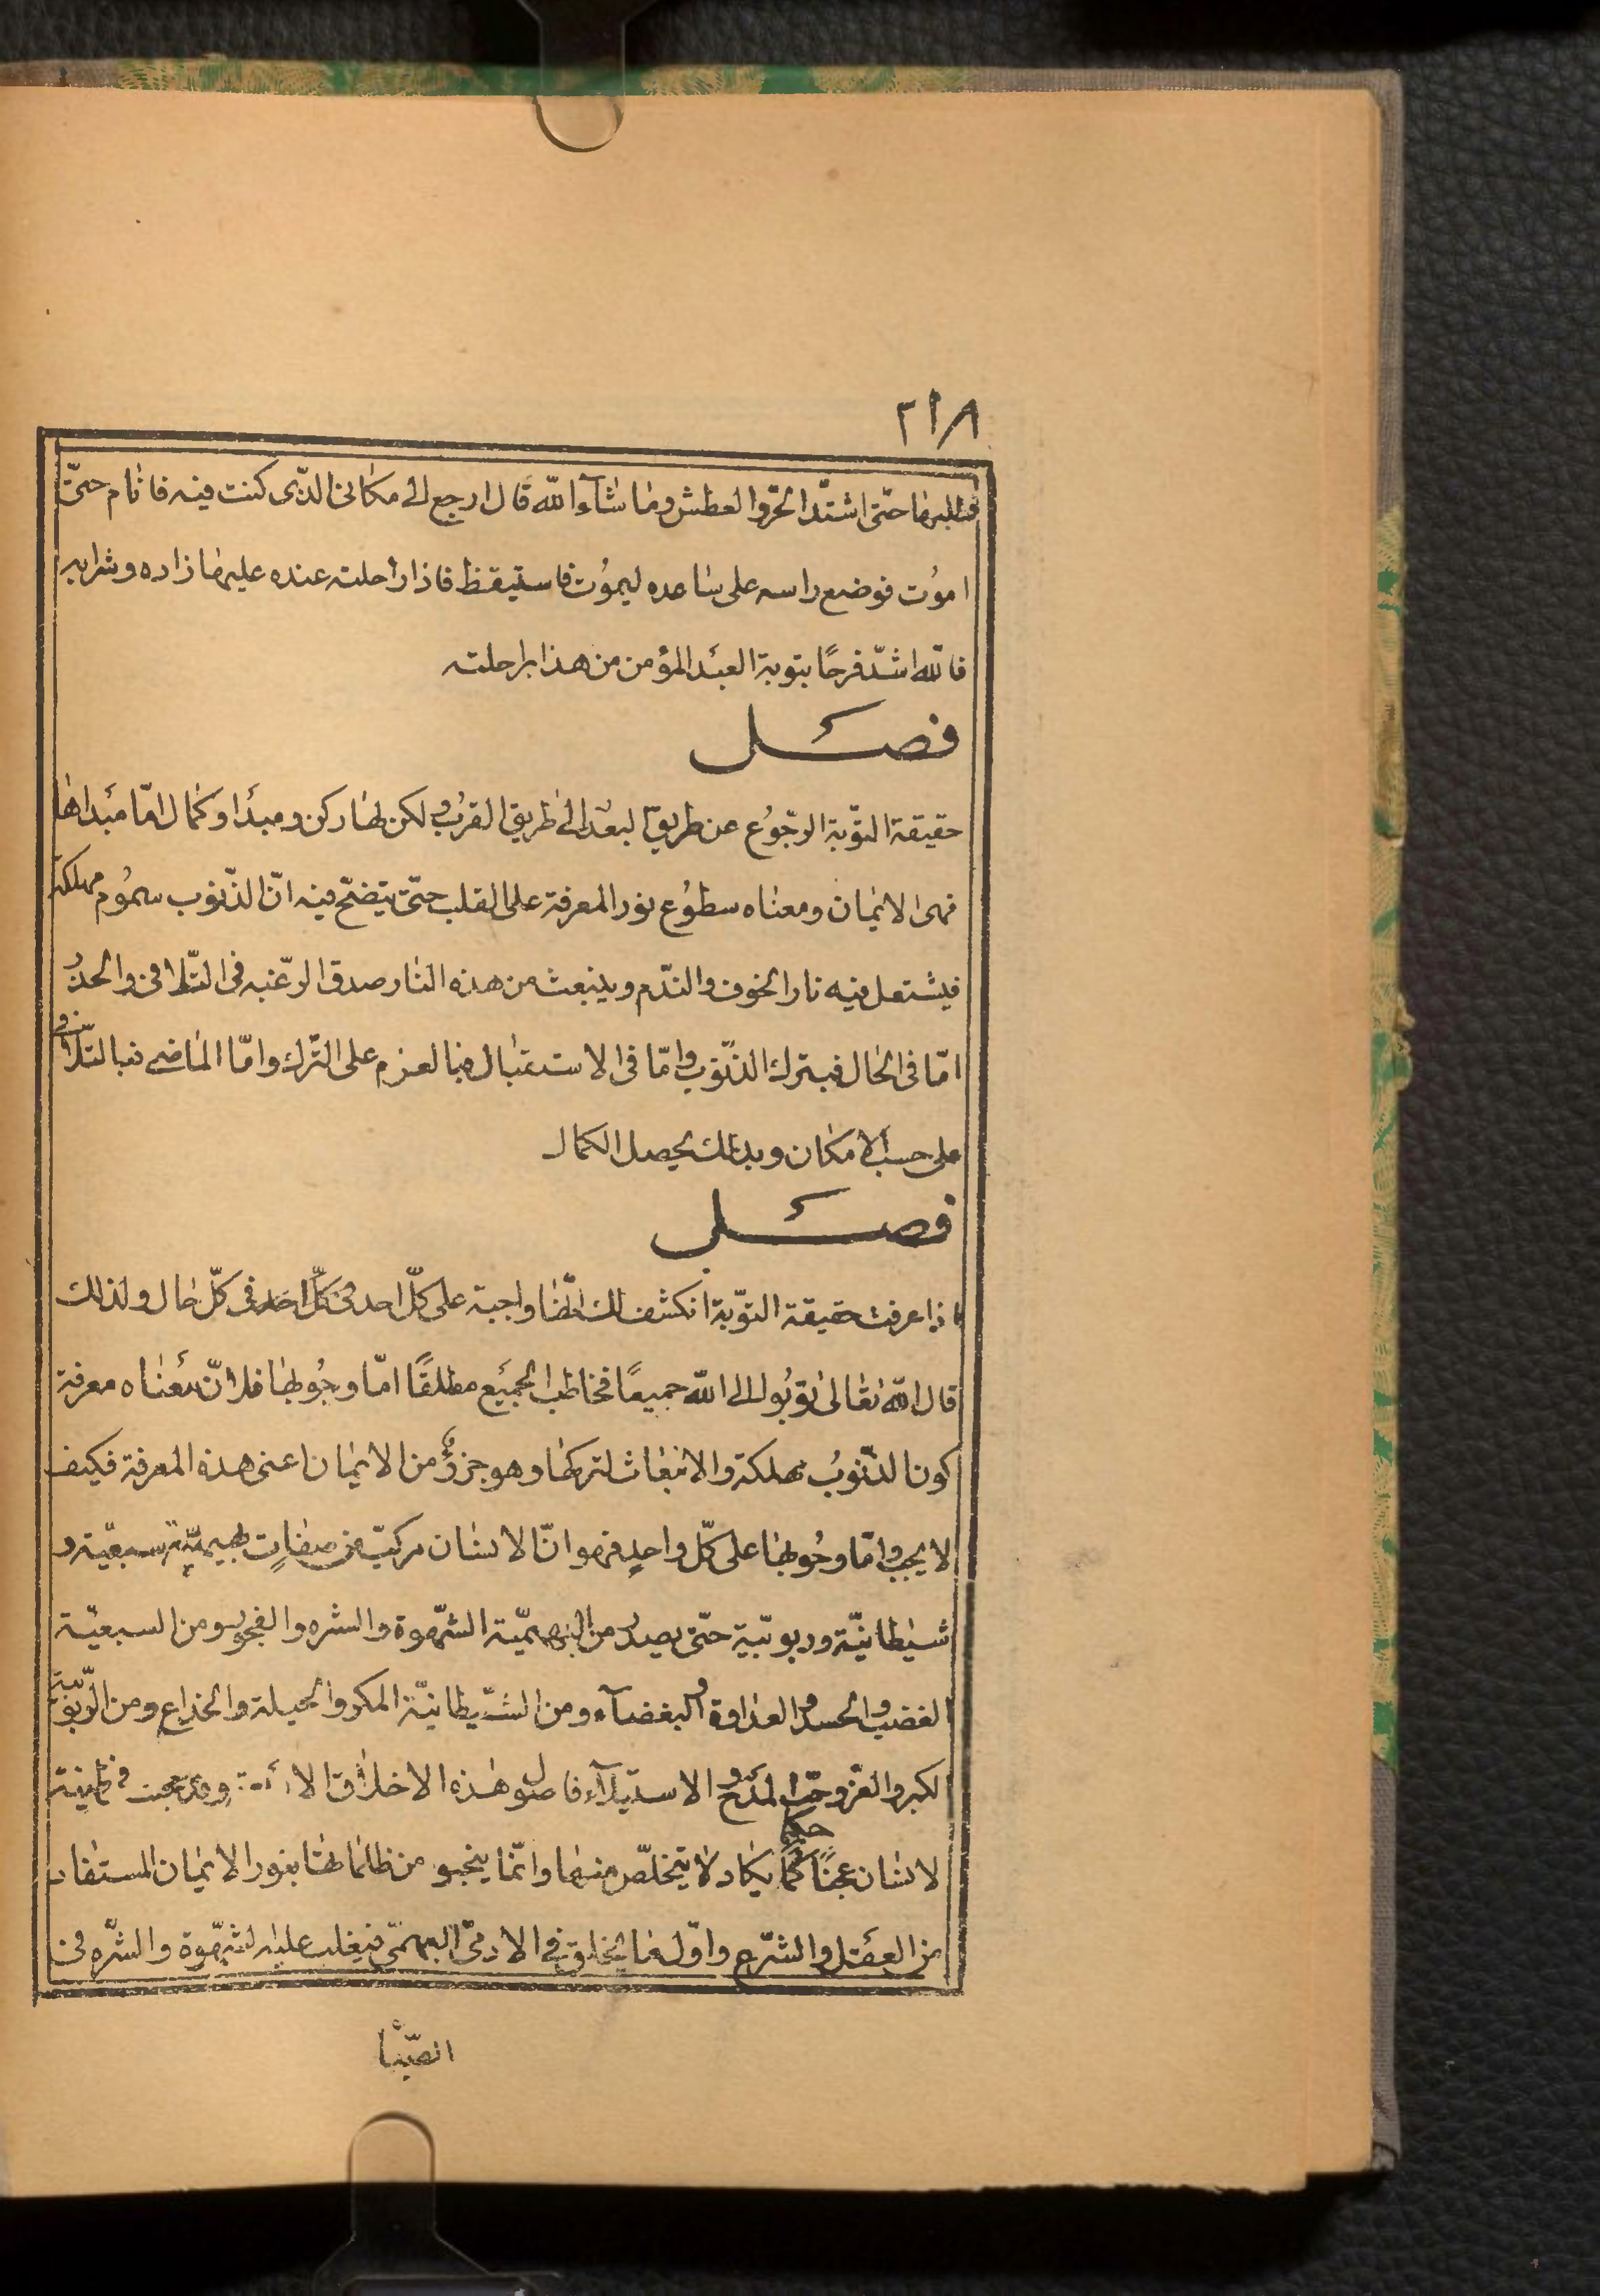 ٢١٨
فطلبها حتّى اشتدّ الحرّ والعطش وما شآء الله قال ارجع الى مكانى الذّى كنت فيه فانام حتىّ
اموُت فوضع راسه على ساعده ليموُت فاستيقظ فاذا راحلته عنده عليها زاده وشرابه
فالله اشدّ فرحًا بتوبة العبد المؤمن من هذا براحلته
فصل
حقيقة التوّبة الرجّوُع عن طريق البعد الى طريق القرُب ولكن لها ركن ومبدأ وكمال امّا مبداها
فهى الايمان ومعناه سطوُع نور المعرفة على القلب حتّى يتضّح فيه انّ الذّنوب سموُم مهلكة
فيشتعل فيه نار الخوف والندّم وينبعث من هذه النار صدق الرّغبه فى التّلافى والحذر
امّا فى الحال فبترك الذنّوب وامّا فى الاستقبال فبالعزم على التّرك وامّا الماضى فبالتّلافى
على حسب الامكان وبذلك يحصل الكمال
فصل
اذا عرفت حقيقة التوّبة انكشف لك انّها واجبة على كلّ احد فى كلّ احد فى كلّ حال ولذلك
قال الله تعالى توبُوا الى الله جميعًا فخاطب الجميع مطلقًا امّا وجُوبها فلانّ معناه معرفة
كون الذنّوبُ مهلكة والانبغاث لتركها وهو جزؤ من الايمان اعنى هذه المعرفة فكيف
لا يجب وامّا وجُوبها على كلّ واحدٍ فهو انّ الانسان مركبّ من صفاتٍ بهيميّة سبعيّة و
شيطانيّة وربوبّية حتّى يصدر من البهيميّة الشّهوة والشره والفجور ومن السبعيّة
الغضب والحسد والعداوة والبغضآء ومن الشّيطانيّة المكر والحيلة والخداع ومن الرّبوبيّة
الكبر والعزّ وحبّ المدح والاستيلآء فاصول هذه الاخلاق الاربعة وقد عجنت فى طينة
الانسان عجنًا محكمًا يكاد لا يتخلّص منها وانّما ينجو من ظلماتها بنور الايمان المستفاد
من العقل والشّرع واوّل ما يخلق فى الادمىّ البهيمىّ فيغلب عليه الشّهوة والشّره فى
الصّبا